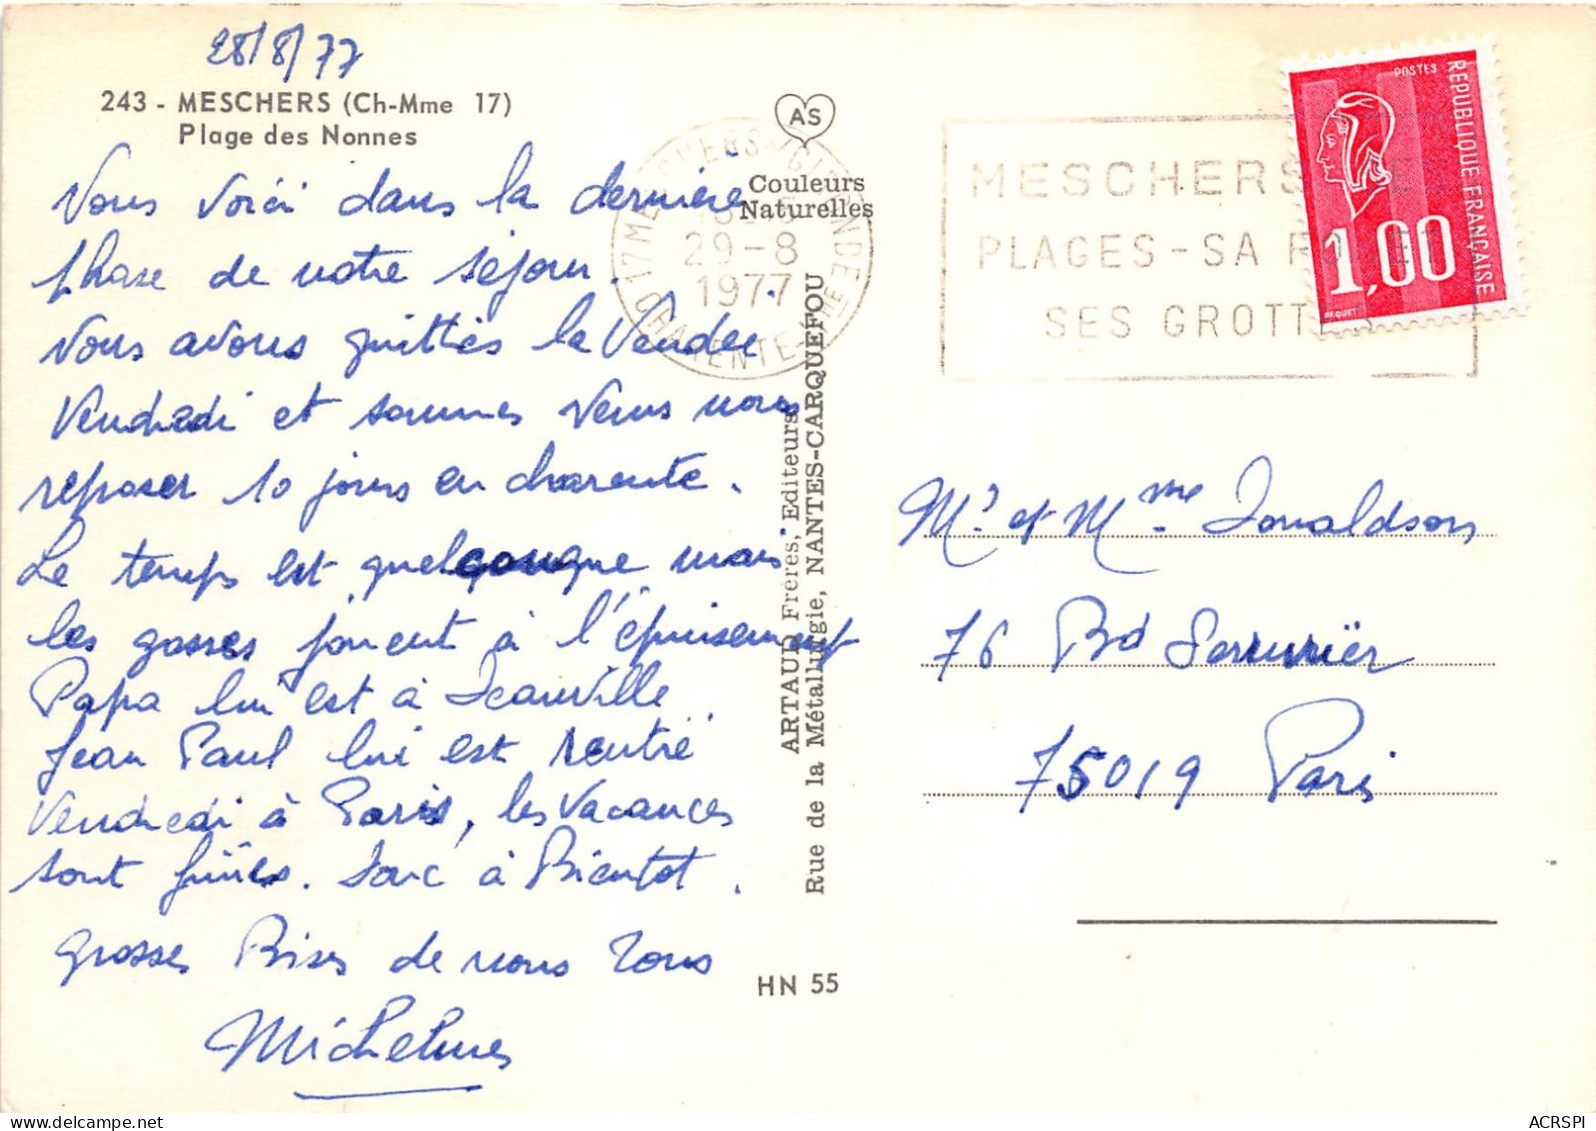 28/8/77
243 - MESCHERS (Ch-Mme 17)
Plage des Nonnes
Nous voici dans la dernière
phase de notre séjour.
Nous avons quittés la Vendée
Vendredi et sommes venus nous
reposer 10 jours en charente.
Le temps est quelconque mais
les gosses jouent à l'épuisement
Papa lui est à
Jean Paul lui est rentré
Vendredi à Paris, les vacances
sont finies. Donc à Bientot.
grosses Bises de nous Tous
AS
Couleurs
Naturelles
17 MESCHERS-S-GIRONDE
29-8
1977
CHARENTE-MME
ARTAUD Frères, Editeurs
Rue de la Métallurgie, NANTES-CARQUEFOU
HN 55
MESCHERS
PLAGES - SA
SES GROTTES
POSTES
REPUBLIQUE FRANÇAISE
1,00
BEQUET
Mr et Mme Donaldson
76 Bd Serrurier
75019 Paris
ACRSPI